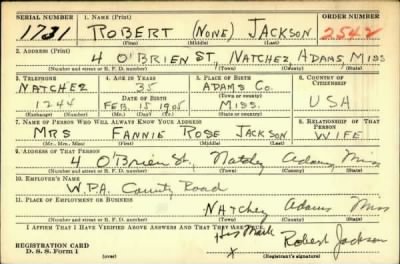 SERIAL NUMBER 1. NAME (Print) ORDER NUMBER
1731 ROBERT (NONE) JACKSON 2542
(First) (Middle) (Last)
2. ADDRESS (Print)
4 O'BRIEN ST NATCHEZ, ADAMS, MISS
(Number and street or R. F. D. number) (Town) (County) (State)
3. TELEPHONE 4. AGE IN YEARS 5. PLACE OF BIRTH 6. COUNTRY OF CITIZENSHIP
NATCHEZ 35 ADAMS CO.
DATE OF BIRTH (Town or county)
1244 FEB. 15 1905 MISS. USA
(Exchange) (Number) (Mo.) (Day) (Yr.) (State or country)
7. NAME OF PERSON WHO WILL ALWAYS KNOW YOUR ADDRESS 8. RELATIONSHIP OF THAT PERSON
MRS FANNIE ROSE JACKSON WIFE
(Mr., Mrs., Miss) (First) (Middle) (Last)
9. ADDRESS OF THAT PERSON
4 O'Brien St, Natchez Adams, Miss
(Number and street or R. F. D. number) (Town) (County) (State)
10. EMPLOYER'S NAME
W.P.A. County Road
11. PLACE OF EMPLOYMENT OR BUSINESS
Natchez Adams Miss
(Number and street or R. F. D. number) (Town) (County) (State)
I AFFIRM THAT I HAVE VERIFIED ABOVE ANSWERS AND THAT THEY ARE TRUE.
His Mark
REGISTRATION CARD X Robert Jackson
D. S. S. Form 1 (over) (Registrant's signature)